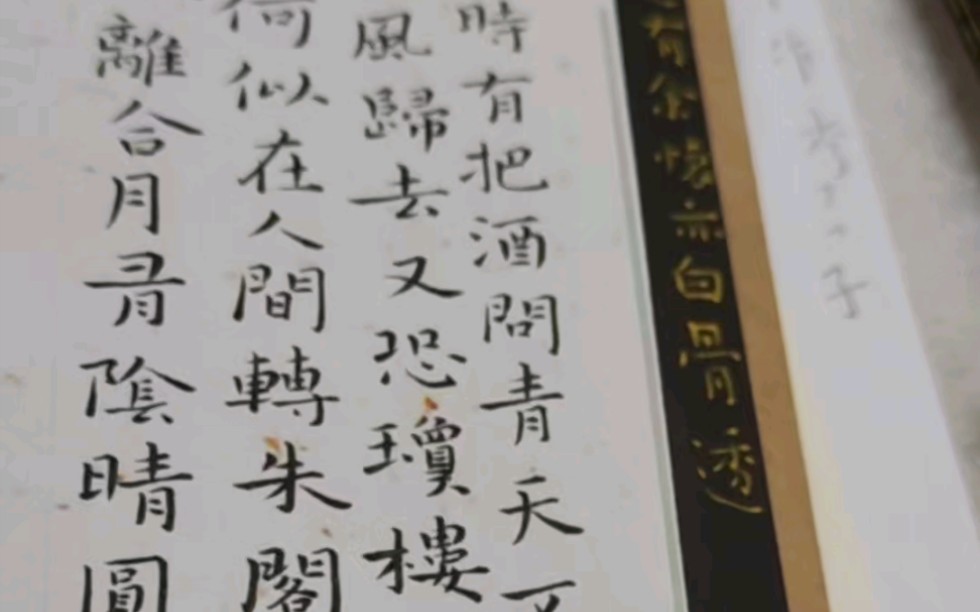 有
懷亦白骨透
時有把酒問青天不
風歸去又恐瓊樓
何似在人間轉朱閣
離合月有陰晴圓